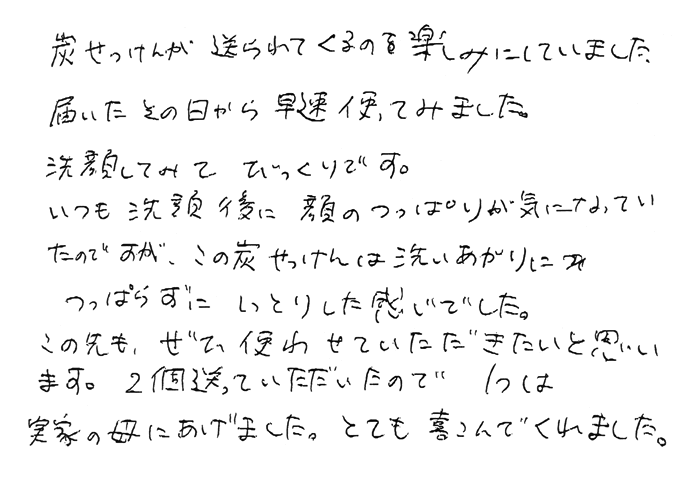 炭せっけんが送られてくるのを楽しみにしていました
届いたその日から早速使ってみました。
洗顔してみてびっくりです。
いつも洗顔後に顔のつっぱりが気になってい
たのですが、この炭せっけんは洗いあがりにも
つっぱらずにしっとりした感じでした。
この先も、ぜひ使わせていただきたいと思い
ます。2個送っていただいたので1つは
実家の母にあげました。とても喜こんでくれました。